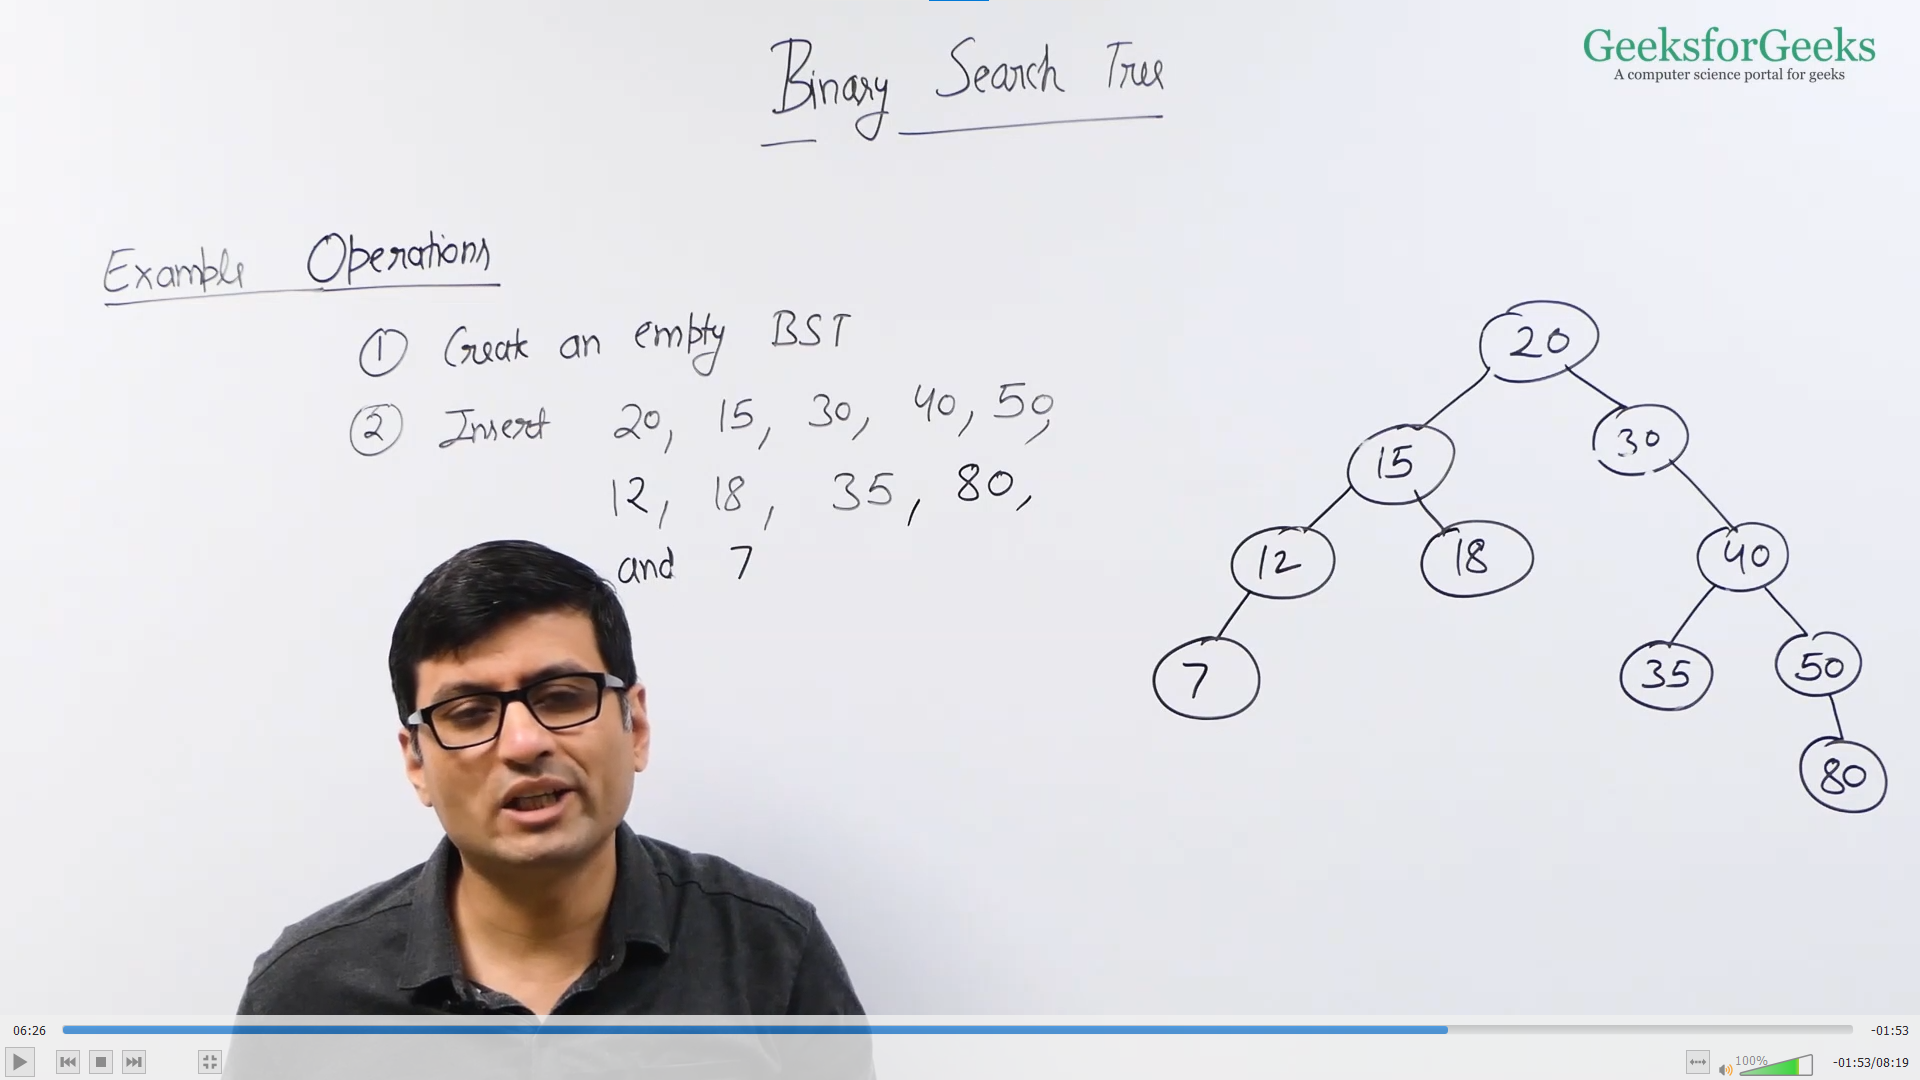 Binary Search Tree
GeeksforGeeks
A computer science portal for geeks
Example Operations
① Create an empty BST
② Insert 20, 15, 30, 40, 50,
12, 18, 35, 80,
and 7
20
15
30
12
18
40
7
35
50
80
06:26
-01:53
100%
-01:53/08:19